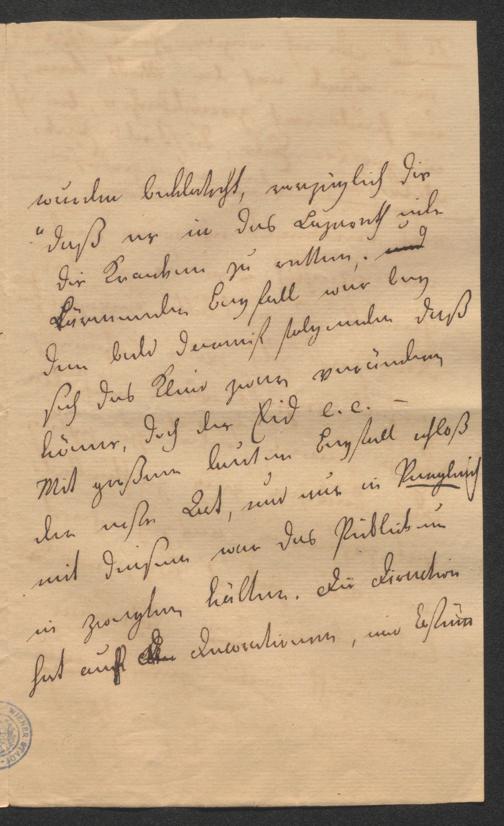 wurden beklatscht, vorzüglich die
"daß er in das Lazareth eile
die Kranken zu retten,.
Lärmenden Beyfall war bey
dem bald darauf folgenden daß
sich das Kleid zwar verändern
könne, doch der Eid e.c. –
Mit großem lauten Beyfall schloß
der erste Act, und nur in Vergleich
mit diesem war das Publikum
im zweyten kälter. Die Direction
hat auf Decorationen, und Costüm
WIENER STADT